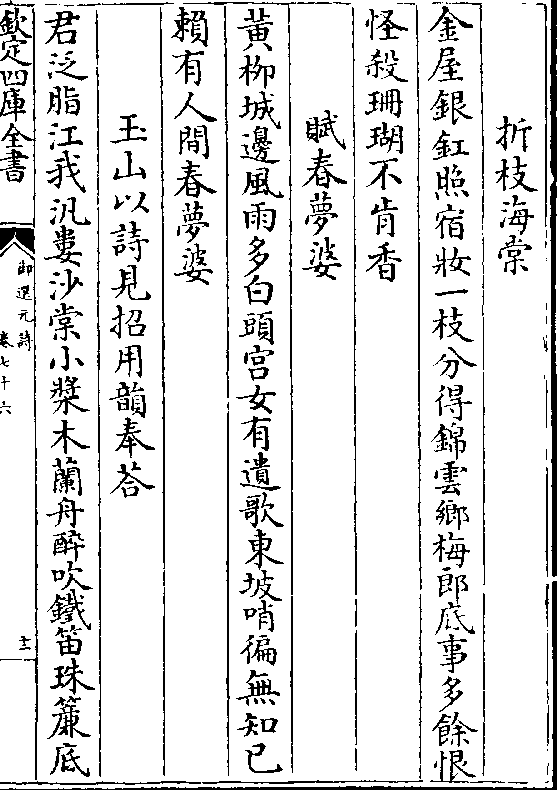 折枝海棠
金屋銀釭照宿妝一枝分得錦雲鄉梅郎底事多餘恨
怪殺珊瑚不肯香
賦春夢婆
黄柳城邊風雨多白頭宫女有遺歌東坡哨徧無知己
賴有人間春夢婆
玉山以詩見招用韻奉荅
君泛脂江我汎婁沙棠小槳木蘭舟醉吹鐵笛珠簾底
欽定四庫全書
御選元詩
卷七十六
十二